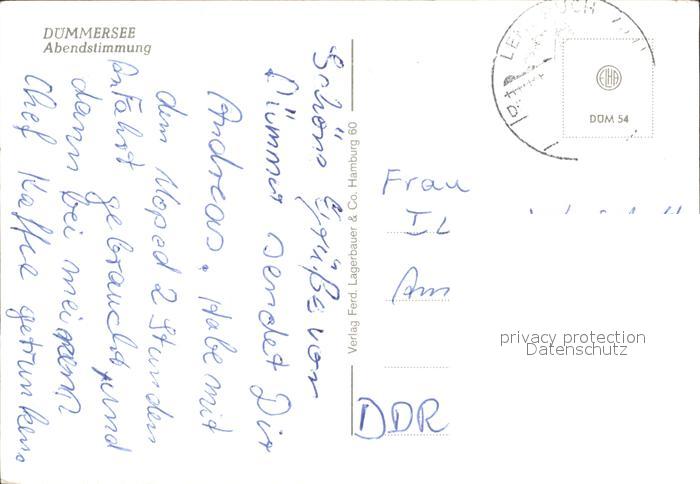 DÜMMERSEE
Abendstimmung
Schöne Grüße von
Dümmer sendet Dir
Andreas. Habe mit
dem Moped 2 Stunden
Anfahrt gebraucht und
dann bei meinem
Chef Kaffee getrunken.
Verlag Ferd. Lagerbauer & Co. Hamburg 60
ELHA
DÜM 54
Frau
Am
DDR
privacy protection
Datenschutz